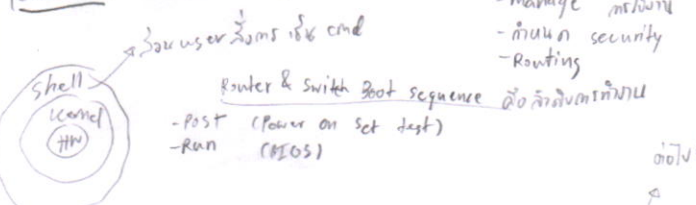 - Manage การใช้งาน
- กำหนด security
- Routing
ส่วน user สั่งการ เช่น cmd
Shell
Kernel
HW
Router & Switch Boot sequence คือ ลำดับการทำงาน
- Post (Power on Set test)
- Run (BIOS)
ต่อไป